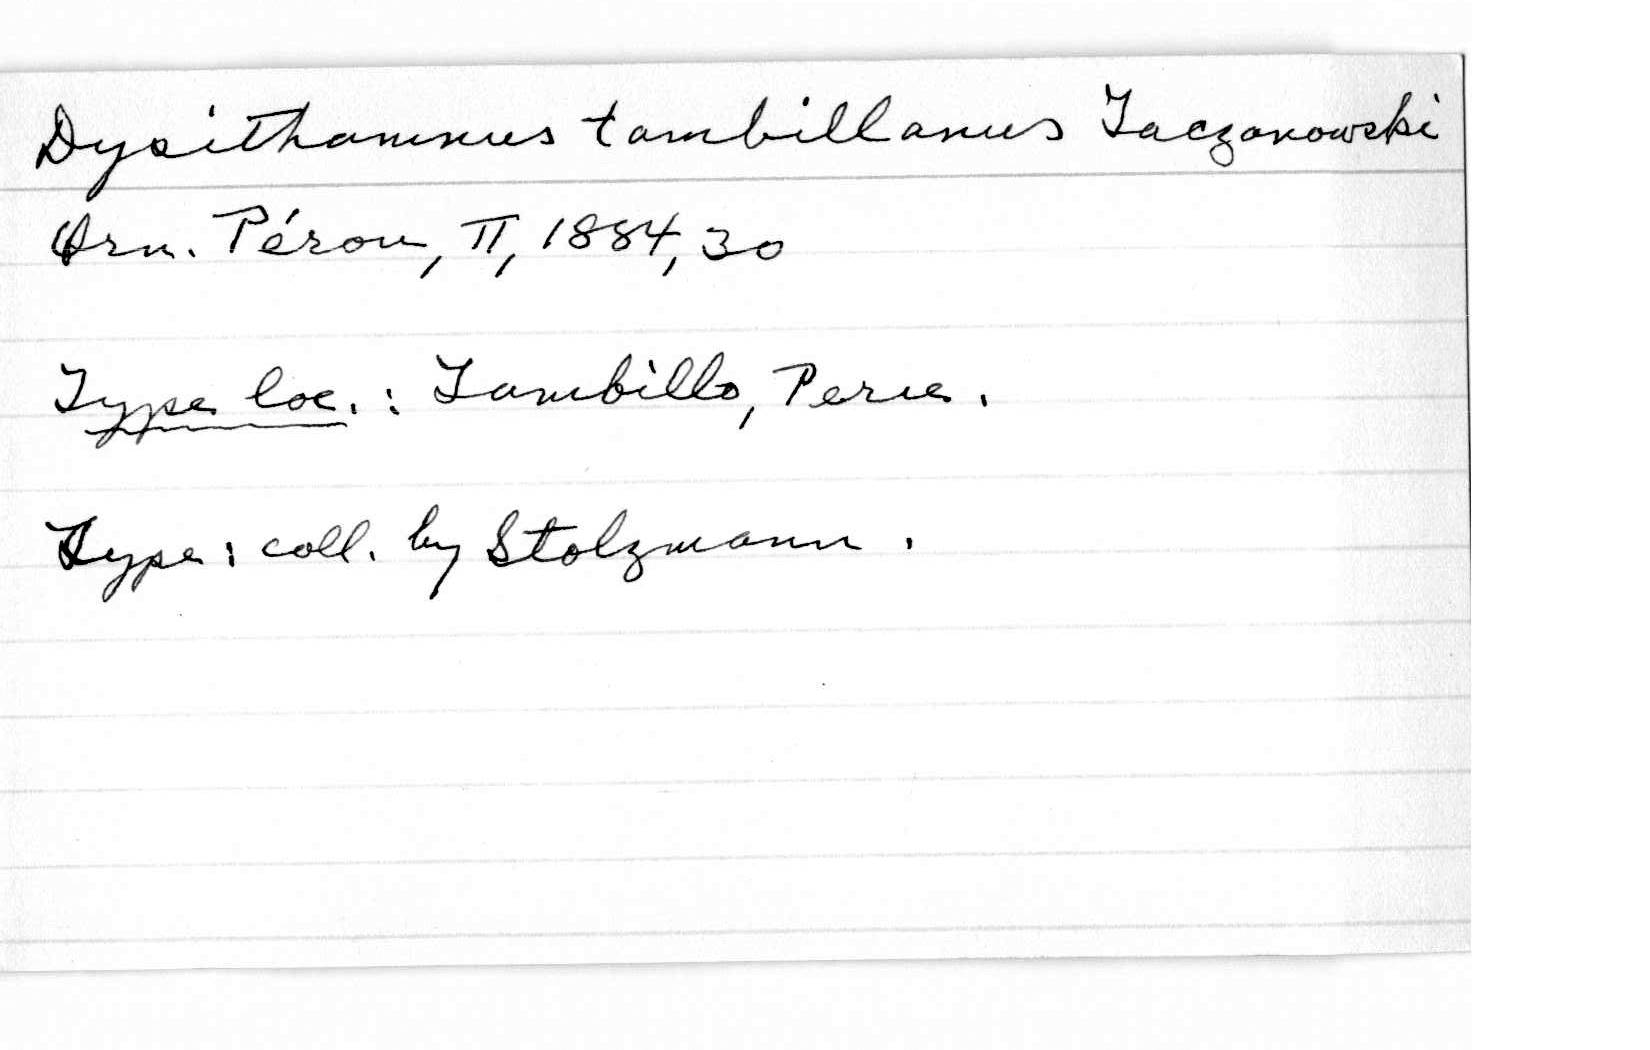 Dysithamnus tambillanus Taczanowski
Orn. Pérou, II, 1884, 30
Type loc. : Tambillo, Peru.
Type : coll. by Stolzmann.